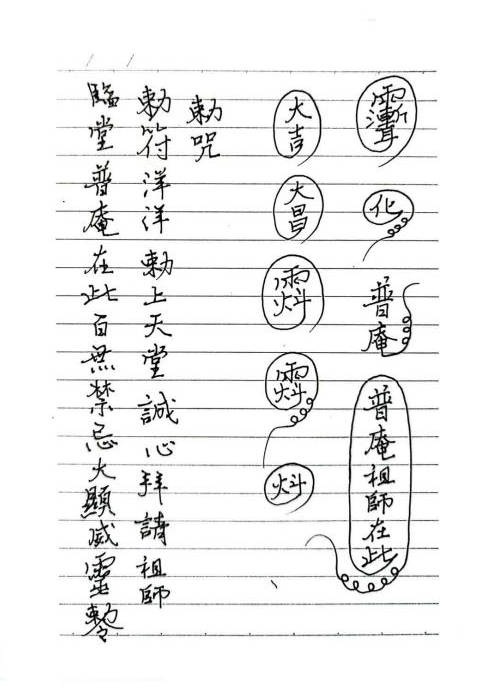 化
普庵
普庵祖師在此
大吉
大昌
勅咒
勅符洋洋勅上天堂誠心拜請祖師
臨堂普庵在此百無禁忌大顯威靈勅令